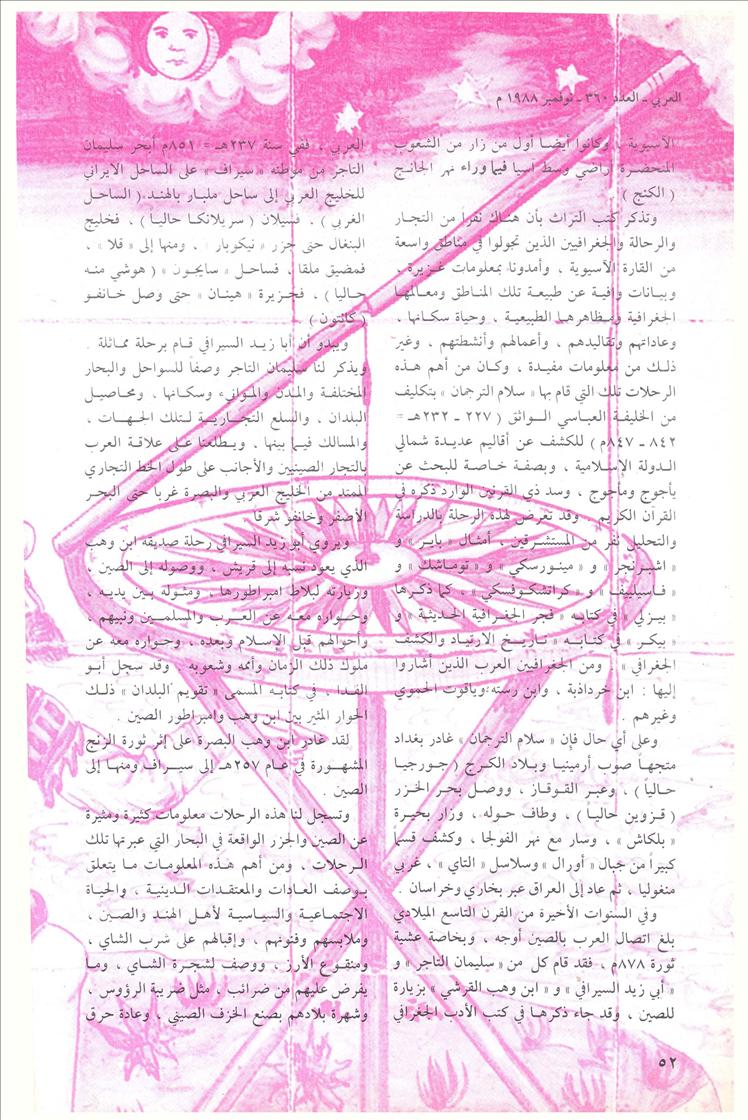 العربي - العدد ٣٦٠ - نوفمبر ١٩٨٨ م
الآسيوية ، وكانوا أيضا أول من زار من الشعوب
المتحضرة أراضي وسط آسيا فيما وراء نهر الجانج
( الكنج )
وتذكر كتب التراث بأن هناك نفرا من التجار
والرحالة والجغرافيين الذين تجولوا في مناطق واسعة
من القارة الآسيوية ، وأمدونا بمعلومات غزيرة ،
وبيانات وافية عن طبيعة تلك المناطق ومعالمها
الجغرافية ومظاهرها الطبيعية ، وحياة سكانها ،
وعاداتهم وتقاليدهم ، وأعمالهم وأنشطتهم ، وغير
ذلك من معلومات مفيدة ، وكان من أهم هذه
الرحلات تلك التي قام بها « سلام الترجمان » بتكليف
من الخليفة العباسي الواثق ( ٢٢٧ - ٢٣٢هـ =
٨٤٢ - ٨٤٧م ) للكشف عن أقاليم عديدة شمالي
الدولة الإسلامية ، وبصفة خاصة للبحث عن
يأجوج ومأجوج ، وسد ذي القرنين الوارد ذكره في
القرآن الكريم ، وقد تعرض لهذه الرحلة بالدراسة
والتحليل نفر من المستشرقين ، أمثال « باير » و
« اشبرنجر » و « مينورسكي » و « توماشك » و
« فاسيلييف » و « كراتشكوفسكي » ، كما ذكرها
« بيزلي » في كتابه « فجر الجغرافية الحديثة » و
« بيكر » في كتابه « تاريخ الارتياد والكشف
الجغرافي » . ومن الجغرافيين العرب الذين أشاروا
إليها : ابن خرداذبة ، وابن رسته وياقوت الحموي
وغيرهم .
وعلى أي حال فإن « سلام الترجمان » غادر بغداد
متجهاً صوب أرمينيا وبلاد الكرج ( جورجيا
حالياً ) ، وعبر القوقاز ، ووصل بحر الخزر
( قزوين حالياً ) ، وطاف حوله ، وزار بحيرة
« بلكاش » ، وسار مع نهر الفولجا ، وكشف قسماً
كبيراً من جبال « أورال » وسلاسل « التاي » ، غربي
منغوليا ، ثم عاد إلى العراق عبر بخاري وخراسان .
وفي السنوات الأخيرة من القرن التاسع الميلادي
بلغ اتصال العرب بالصين أوجه ، وبخاصة عشية
ثورة ٨٧٨م ، فقد قام كل من « سليمان التاجر » و
« أبي زيد السيرافي » و « ابن وهب القرشي » بزيارة
للصين ، وقد جاء ذكرها في كتب الأدب الجغرافي
العربي ، ففي سنة ٢٣٧هـ = ٨٥١م أبحر سليمان
التاجر من موطنه « سيراف » على الساحل الايراني
للخليج العربي إلى ساحل مليار بالهند ( الساحل
الغربي ) ، فسيلان ( سريلانكا حاليا ) ، فخليج
البنغال حتى جزر « نيكوبار » ، ومنها إلى « قلا » ،
فمضيق ملقا ، فساحل « سايجون » ( هوشي منه
حاليا ) ، فجزيرة « هينان » حتى وصل خانفو
( كانتون )
ويبدو أن أبا زيد السيرافي قام برحلة مماثلة .
ويذكر لنا سليمان التاجر وصفاً للسواحل والبحار
المختلفة والمدن والموانيء وسكانها ، ومحاصيل
البلدان ، والسلع التجارية لتلك الجهات ،
والمسالك فيما بينها ، ويطلعنا على علاقة العرب
بالتجار الصينيين والأجانب على طول الخط التجاري
الممتد من الخليج العربي والبصرة غربا حتى البحر
الأصفر وخانفو شرقا
ويروي أبو زيد السيرافي رحلة صديقه ابن وهب
الذي يعود نسبه إلى قريش ، ووصوله إلى الصين ،
وزيارته لبلاط امبراطورها ، ومثوله بين يديه ،
وحواره معه عن العرب والمسلمين ونبيهم ،
وأحوالهم قبل الإسلام وبعده ، وحواره معه عن
ملوك ذلك الزمان وأممه وشعوبه . وقد سجل أبو
الفدا ، في كتابه المسمى « تقويم البلدان » ذلك
الحوار المثير بين ابن وهب وامبراطور الصين .
لقد غادر ابن وهب البصرة على إثر ثورة الزنج
المشهورة في عام ٢٥٧هـ إلى سيراف ومنها إلى
الصين .
وتسجل لنا هذه الرحلات معلومات كثيرة ومثيرة
عن الصين والجزر الواقعة في البحار التي عبرتها تلك
الرحلات ، ومن أهم هذه المعلومات ما يتعلق
بوصف العادات والمعتقدات الدينية ، والحياة
الاجتماعية والسياسية لأهل الهند والصين ،
وملابسهم وفنونهم ، وإقبالهم على شرب الشاي ،
ومنقوع الأرز ، ووصف لشجرة الشاي ، وما
يفرض عليهم من ضرائب ، مثل ضريبة الرؤوس ،
وشهرة بلادهم بصنع الخزف الصيني ، وعادة حرق
٥٢